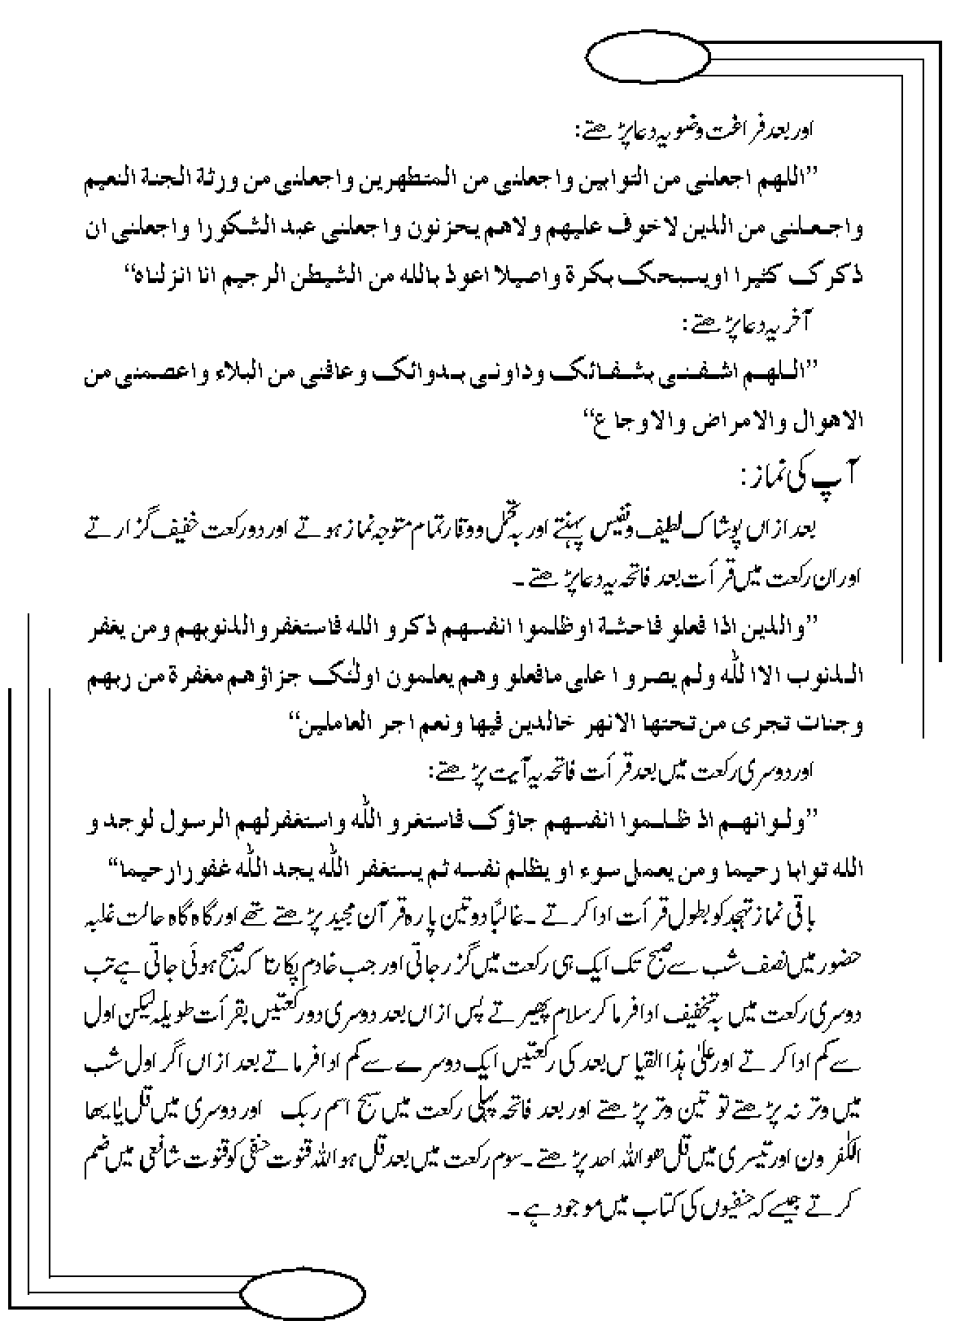 اور بعد فراغت وضو یہ دعا پڑھتے:
”اللہم اجعلنی من التوابین واجعلنی من المتطھرین واجعلنی من ورثة الجنة النعیم
واجعلنی من الذین لاخوف علیھم ولاھم یحزنون واجعلنی عبد الشکورا واجعلنی ان
ذکرک کثیرا اویسبحک بکرة واصیلا اعوذ باللہ من الشیطن الرجیم انا انزلناہ“
آخر یہ دعا پڑھتے:
”اللھم اشفنی بشفائک وداونی بدوائک وعافنی من البلاء واعصمنی من
الاھوال والامراض والاوجاع“
آپ کی نماز:
بعد ازاں پوشاک لطیف و نفیس پہنتے اور بہ تحمل ووقار تمام متوجہ نماز ہوتے اور دو رکعت خفیف گزارتے
اور ان رکعت میں قرأت بعد فاتحہ یہ دعا پڑھتے ۔
”والذین اذا فعلو فاحشة اوظلموا انفسھم ذکرو اللہ فاستغفروالذنوبھم ومن یغفر
الذنوب الا اللہ ولم یصروا علی مافعلو وھم یعلمون اولٰئک جزاؤھم مغفرة من ربھم
وجنات تجری من تحتھا الانھر خالدین فیھا ونعم اجر العاملین“
اور دوسری رکعت میں بعد قرأت فاتحہ یہ آیت پڑھتے:
”ولوانھم اذ ظلموا انفسھم جاؤک فاستغرو اللہ واستغفرلھم الرسول لوجدو
اللہ توابا رحیما ومن یعمل سوء او یظلم نفسہ ثم یستغفر اللہ یجد اللہ غفورا رحیما“
باقی نماز تہجد کو بطول قرأت ادا کرتے ۔ غالباً دو تین پارہ قرآن مجید پڑھتے تھے اور گاہ گاہ حالت غلبہ
حضور میں نصف شب سے صبح تک ایک ہی رکعت میں گزر جاتی اور جب خادم پکارتا کہ صبح ہوئی جاتی ہے تب
دوسری رکعت میں بہ تخفیف ادا فرما کر سلام پھیرتے پس ازاں بعد دوسری دو رکعتیں بقرأت طویلہ لیکن اول
سے کم ادا کرتے اور علیٰ ہذا القیاس بعد کی رکعتیں ایک دوسرے سے کم ادا فرماتے بعد ازاں اگر اول شب
میں وتر نہ پڑھتے تو تین وتر پڑھتے اور بعد فاتحہ پہلی رکعت میں سبح اسم ربک اور دوسری میں قل یٰایھا
الکٰفرون اور تیسری میں قل ھو اللہ احد پڑھتے ۔ سوم رکعت میں بعد قل ہو اللہ قنوت حنفی کو قنوت شافعی میں ضم
کرتے جیسے کہ حنفیوں کی کتاب میں موجود ہے ۔